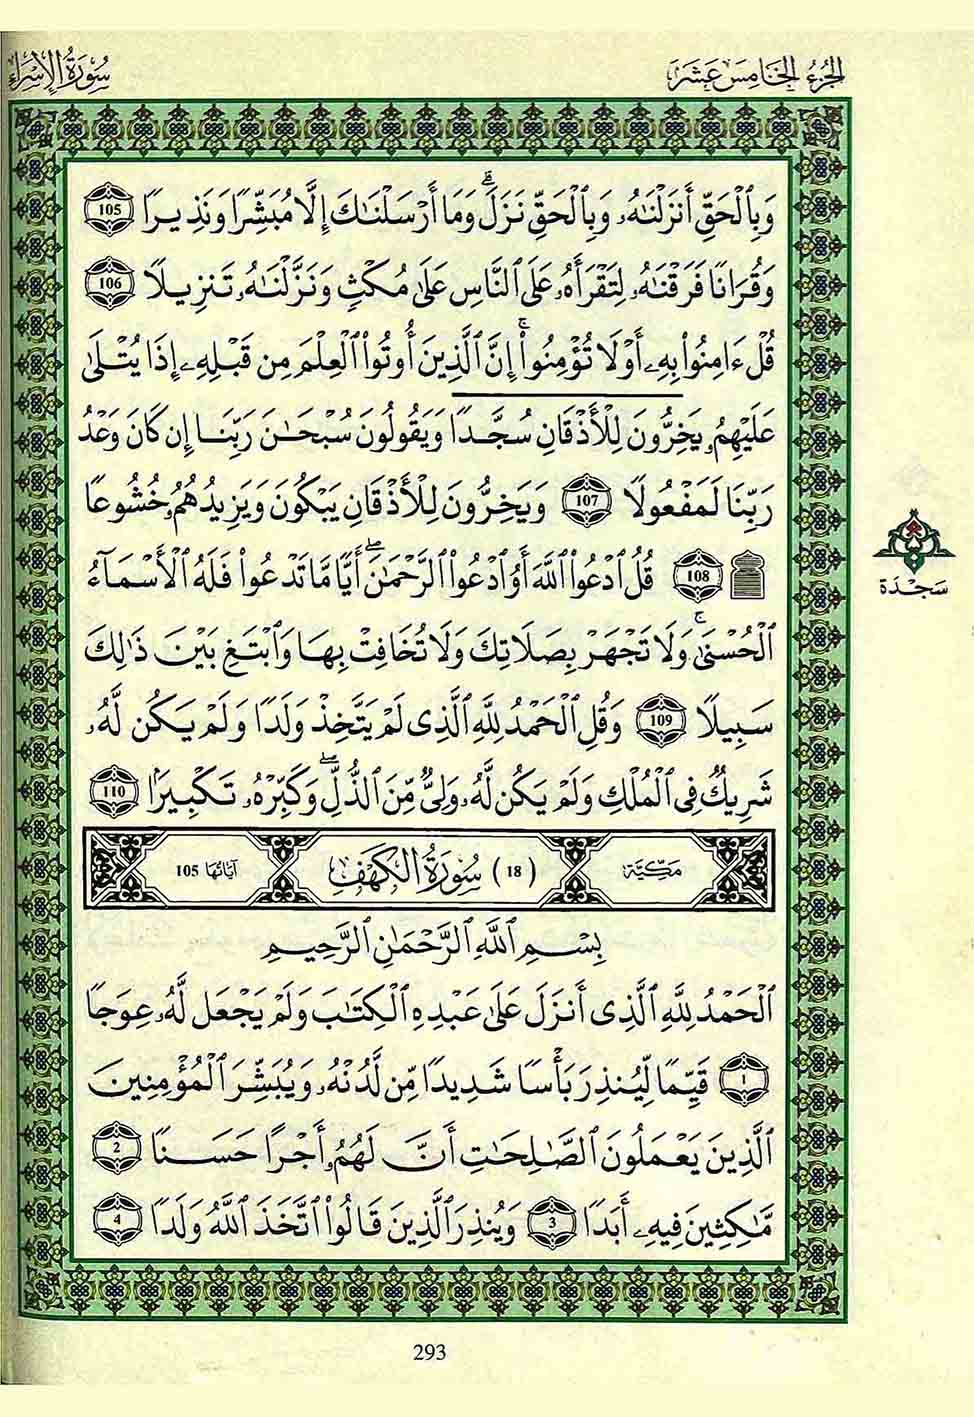 الجزء الخامس عشر
سورة الإسراء
وَبِٱلْحَقِّ أَنزَلْنَٰهُۥ وَبِٱلْحَقِّ نَزَلَ ۗ وَمَا أَرْسَلْنَٰكَ إِلَّا مُبَشِّرًا وَنَذِيرًا 105
وَقُرَانًا فَرَقْنَٰهُۥ لِتَقْرَأَهُۥ عَلَى ٱلنَّاسِ عَلَىٰ مُكْثٍ وَنَزَّلْنَٰهُۥ تَنزِيلًا 106
قُلْ ءَامِنُوا۟ بِهِۦ أَوْ لَا تُؤْمِنُوا۟ ۚ إِنَّ ٱلَّذِينَ أُوتُوا۟ ٱلْعِلْمَ مِن قَبْلِهِۦ إِذَا يُتْلَىٰ
عَلَيْهِمُۥ يَخِرُّونَ لِلْأَذْقَانِ سُجَّدًا وَيَقُولُونَ سُبْحَٰنَ رَبِّنَا إِن كَانَ وَعْدُ
رَبِّنَا لَمَفْعُولًا 107 وَيَخِرُّونَ لِلْأَذْقَانِ يَبْكُونَ وَيَزِيدُهُمُۥ خُشُوعًا
108 قُلُ ٱدْعُوا۟ ٱللَّهَ أَوُ ٱدْعُوا۟ ٱلرَّحْمَٰنَ ۖ أَيًّا مَّا تَدْعُوا۟ فَلَهُ ٱلْأَسْمَآءُ
ٱلْحُسْنَىٰ ۚ وَلَا تَجْهَرْ بِصَلَاتِكَ وَلَا تُخَافِتْ بِهَا وَٱبْتَغِ بَيْنَ ذَٰلِكَ
سَبِيلًا 109 وَقُلِ ٱلْحَمْدُ لِلَّهِ ٱلَّذِى لَمْ يَتَّخِذْ وَلَدًا وَلَمْ يَكُن لَّهُۥ
شَرِيكٌ فِى ٱلْمُلْكِ وَلَمْ يَكُن لَّهُۥ وَلِىٌّ مِّنَ ٱلذُّلِّ ۖ وَكَبِّرْهُۥ تَكْبِيرًا 110
مكية (18) سورة الكهف آياتها 105
بِسْمِ ٱللَّهِ ٱلرَّحْمَٰنِ ٱلرَّحِيمِ
ٱلْحَمْدُ لِلَّهِ ٱلَّذِى أَنزَلَ عَلَىٰ عَبْدِهِ ٱلْكِتَٰبَ وَلَمْ يَجْعَل لَّهُۥ عِوَجًا
1 قَيِّمًا لِّيُنذِرَ بَأْسًا شَدِيدًا مِّن لَّدُنْهُۥ وَيُبَشِّرَ ٱلْمُؤْمِنِينَ
ٱلَّذِينَ يَعْمَلُونَ ٱلصَّٰلِحَٰتِ أَنَّ لَهُمُۥ أَجْرًا حَسَنًا 2
مَّٰكِثِينَ فِيهِۦ أَبَدًا 3 وَيُنذِرَ ٱلَّذِينَ قَالُوا۟ ٱتَّخَذَ ٱللَّهُ وَلَدًا 4
سجدة
293